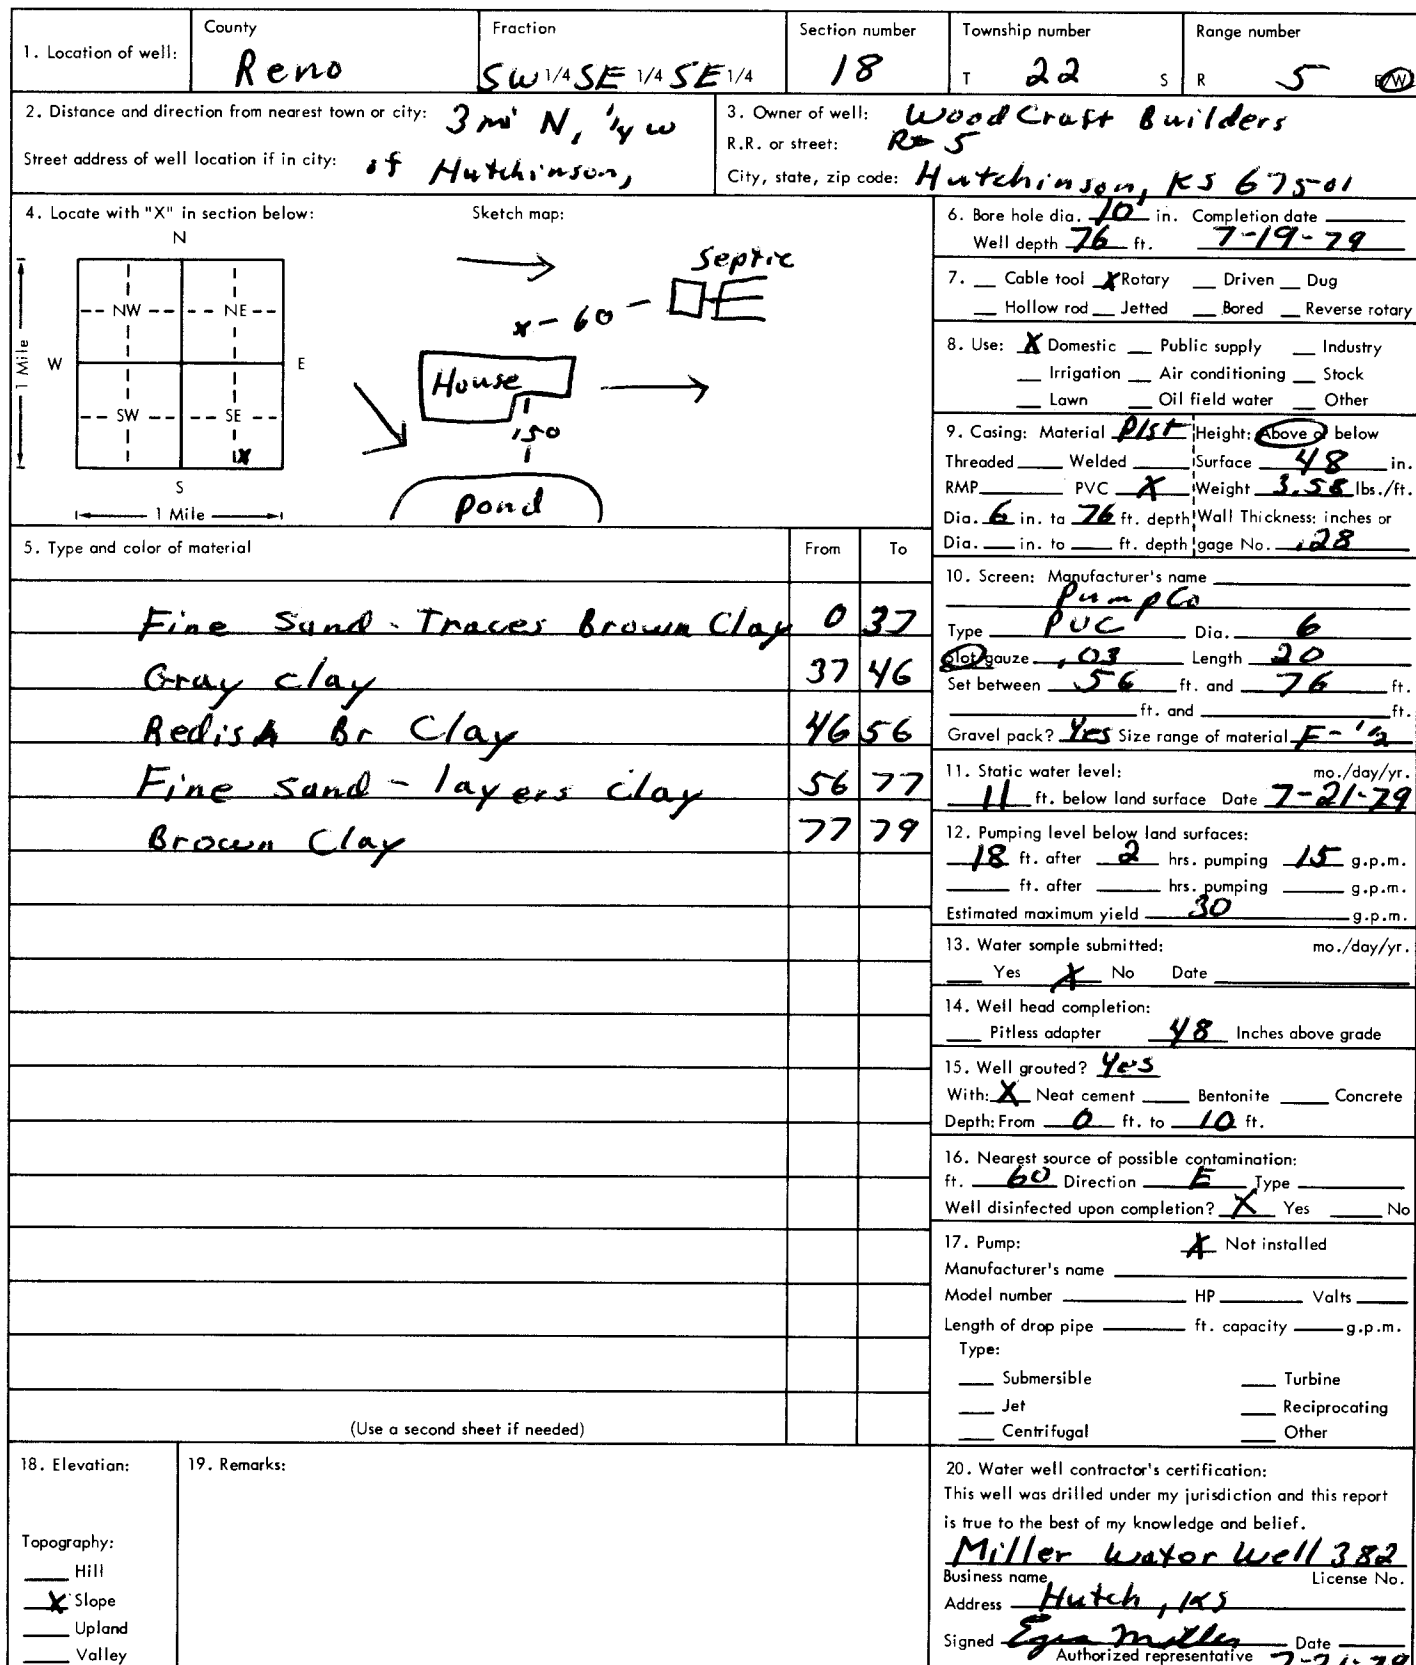 1. Location of well: County Reno Fraction SW 1/4 SE 1/4 SE 1/4 Section number 18 Township number T 22 S Range number R 5 E/W
2. Distance and direction from nearest town or city: 3 mi N, 1/4 W
Street address of well location if in city: of Hutchinson,
3. Owner of well: WoodCraft Builders
R.R. or street: R 5
City, state, zip code: Hutchinson, KS 67501
4. Locate with "X" in section below: Sketch map:
N
NW NE
W E
SW SE
X
S
1 Mile
1 Mile
Septic
x - 60 -
House
150
Pond
5. Type and color of material From To
Fine Sand - Traces Brown Clay 0 37
Gray clay 37 46
Redish Br Clay 46 56
Fine Sand - layers Clay 56 77
Brown Clay 77 79
(Use a second sheet if needed)
6. Bore hole dia. 10 in. Completion date
Well depth 76 ft. 7-19-79
7. Cable tool X Rotary Driven Dug
Hollow rod Jetted Bored Reverse rotary
8. Use: X Domestic Public supply Industry
Irrigation Air conditioning Stock
Lawn Oil field water Other
9. Casing: Material Plst Height: Above or below
Threaded Welded Surface 48 in.
RMP PVC X Weight 3.58 lbs./ft.
Dia. 6 in. to 76 ft. depth Wall Thickness: inches or
Dia. in. to ft. depth gage No. .28
10. Screen: Manufacturer's name
PumpCo
Type PVC Dia. 6
Slot/gauze .03 Length 20
Set between 56 ft. and 76 ft.
ft. and ft.
Gravel pack? Yes Size range of material F-1/2
11. Static water level: mo./day/yr.
11 ft. below land surface Date 7-21-79
12. Pumping level below land surfaces:
18 ft. after 2 hrs. pumping 15 g.p.m.
ft. after hrs. pumping g.p.m.
Estimated maximum yield 30 g.p.m.
13. Water somple submitted: mo./day/yr.
Yes X No Date
14. Well head completion:
Pitless adapter 48 Inches above grade
15. Well grouted? Yes
With: X Neat cement Bentonite Concrete
Depth: From 0 ft. to 10 ft.
16. Nearest source of possible contamination:
ft. 60 Direction E Type
Well disinfected upon completion? X Yes No
17. Pump: X Not installed
Manufacturer's name
Model number HP Valts
Length of drop pipe ft. capacity g.p.m.
Type:
Submersible Turbine
Jet Reciprocating
Centrifugal Other
18. Elevation:
Topography:
Hill
X Slope
Upland
Valley
19. Remarks:
20. Water well contractor's certification:
This well was drilled under my jurisdiction and this report
is true to the best of my knowledge and belief.
Miller Water Well 382
Business name License No.
Address Hutch, KS
Signed Miller Date
Authorized representative 7-21-79